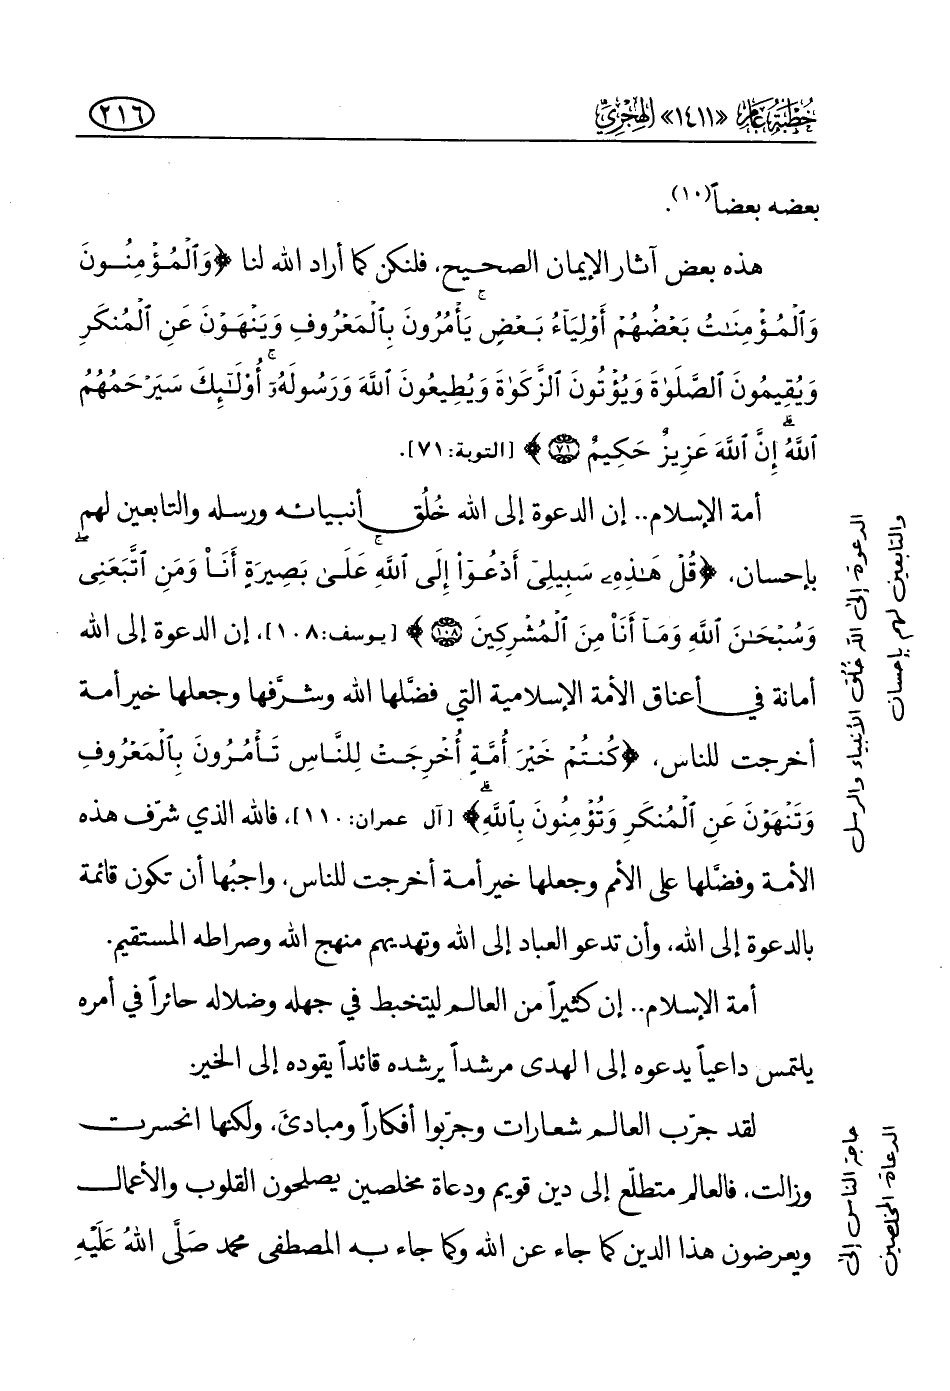 خُطْبَةُ عَامِ «١٤١١» الهِجْرِيِّ
٢١٦
بعضه بعضاً(١٠).
هذه بعض آثار الإيمان الصحيح، فلنكن كما أراد الله لنا ﴿وَٱلْمُؤْمِنُونَ
وَٱلْمُؤْمِنَٰتُ بَعْضُهُمْ أَوْلِيَآءُ بَعْضٍۚ يَأْمُرُونَ بِٱلْمَعْرُوفِ وَيَنْهَوْنَ عَنِ ٱلْمُنكَرِ
وَيُقِيمُونَ ٱلصَّلَوٰةَ وَيُؤْتُونَ ٱلزَّكَوٰةَ وَيُطِيعُونَ ٱللَّهَ وَرَسُولَهُۥٓۚ أُوْلَٰٓئِكَ سَيَرْحَمُهُمُ
ٱللَّهُۗ إِنَّ ٱللَّهَ عَزِيزٌ حَكِيمٌ ٧١﴾ [التوبة:٧١].
أمة الإسلام.. إن الدعوة إلى الله خُلُق أنبيائه ورسله والتابعين لهم
بإحسان، ﴿قُلْ هَٰذِهِۦ سَبِيلِىٓ أَدْعُوٓا۟ إِلَى ٱللَّهِۚ عَلَىٰ بَصِيرَةٍ أَنَا۠ وَمَنِ ٱتَّبَعَنِىۖ
وَسُبْحَٰنَ ٱللَّهِ وَمَآ أَنَا۠ مِنَ ٱلْمُشْرِكِينَ ١٠٨﴾ [يوسف:١٠٨]، إن الدعوة إلى الله
أمانة في أعناق الأمة الإسلامية التي فضَّلها الله وشرَّفها وجعلها خير أمة
أخرجت للناس، ﴿كُنتُمْ خَيْرَ أُمَّةٍ أُخْرِجَتْ لِلنَّاسِ تَأْمُرُونَ بِٱلْمَعْرُوفِ
وَتَنْهَوْنَ عَنِ ٱلْمُنكَرِ وَتُؤْمِنُونَ بِٱللَّهِۗ﴾ [آل عمران:١١٠]، فالله الذي شرّف هذه
الأمة وفضَّلها على الأمم وجعلها خير أمة أخرجت للناس، واجبُها أن تكون قائمة
بالدعوة إلى الله، وأن تدعو العباد إلى الله وتهديهم منهج الله وصراطه المستقيم.
أمة الإسلام.. إن كثيراً من العالم ليتخبط في جهله وضلاله حائراً في أمره
يلتمس داعياً يدعوه إلى الهدى مرشداً يرشده قائداً يقوده إلى الخير.
لقد جرّب العالم شعارات وجربّوا أفكاراً ومبادئَ، ولكنها انحسرت
وزالت، فالعالم متطلّع إلى دين قويم ودعاة مخلصين يصلحون القلوب والأعمال
ويعرضون هذا الدين كما جاء عن الله وكما جاء به المصطفى محمد صَلَّى اللهُ عَلَيْهِ
الدعوة إلى الله خُلُق الأنبياء والرسل
والتابعين لهم بإحسان
حاجة الناس إلى
الدعاة المخلصين